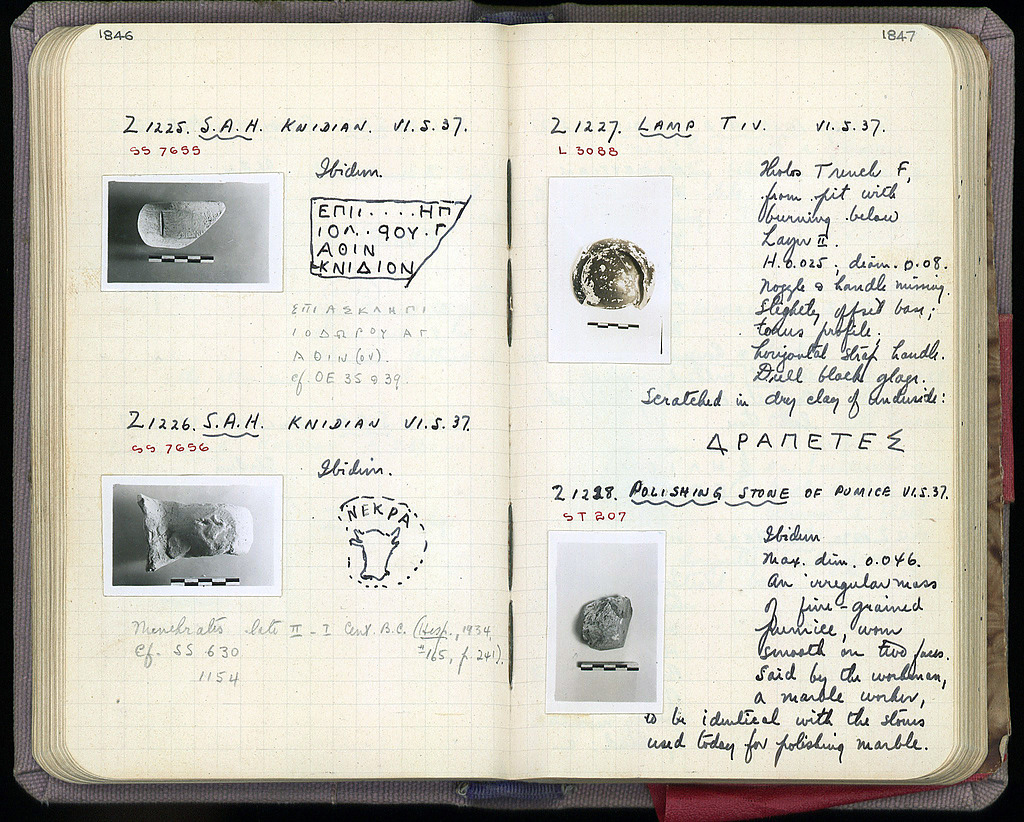 1846
Z 1225. S.A.H. KNIDIAN. VI.5.37.
SS 7655
Ibidem.
ΕΠΙΙ....ΗΠ
ΙΟΛ..ΡΟΥ.Γ
ΑΘΙΝ
ΚΝΙΔΙΟΝ
ΕΠΙΑΣΚΛΗΠΙ
ΙΟΔΩΡΟΥ ΑΓ
ΑΘΙΝ(ΟΥ).
Cf. OE 35 & 39.
Z 1226. S.A.H. KNIDIAN VI.5.37.
SS 7656
Ibidem.
ΝΕΚΡΑ
Menekrates late II - I Cent. B.C. (Hesp., 1934,
#165, p. 241).
Cf. SS 630
1154
1847
Z 1227. LAMP T IV. VI.5.37.
L 3088
Tholos Trench F,
from pit with
burning below
Layer II.
H. 0.025; diam. 0.08.
Nozzle & handle missing.
Slightly offset base;
torus profile;
horizontal strap handle.
Dull black glaze.
Scratched in dry clay of underside:
ΔΡΑΠΕΤΕΣ
Z 1228. POLISHING STONE OF PUMICE VI.5.37.
ST 207
Ibidem.
Max. dim. 0.046.
An irregular mass
of fine-grained
pumice, worn
smooth on two faces.
Said by the workman,
a marble worker,
to be identical with the stones
used today for polishing marble.